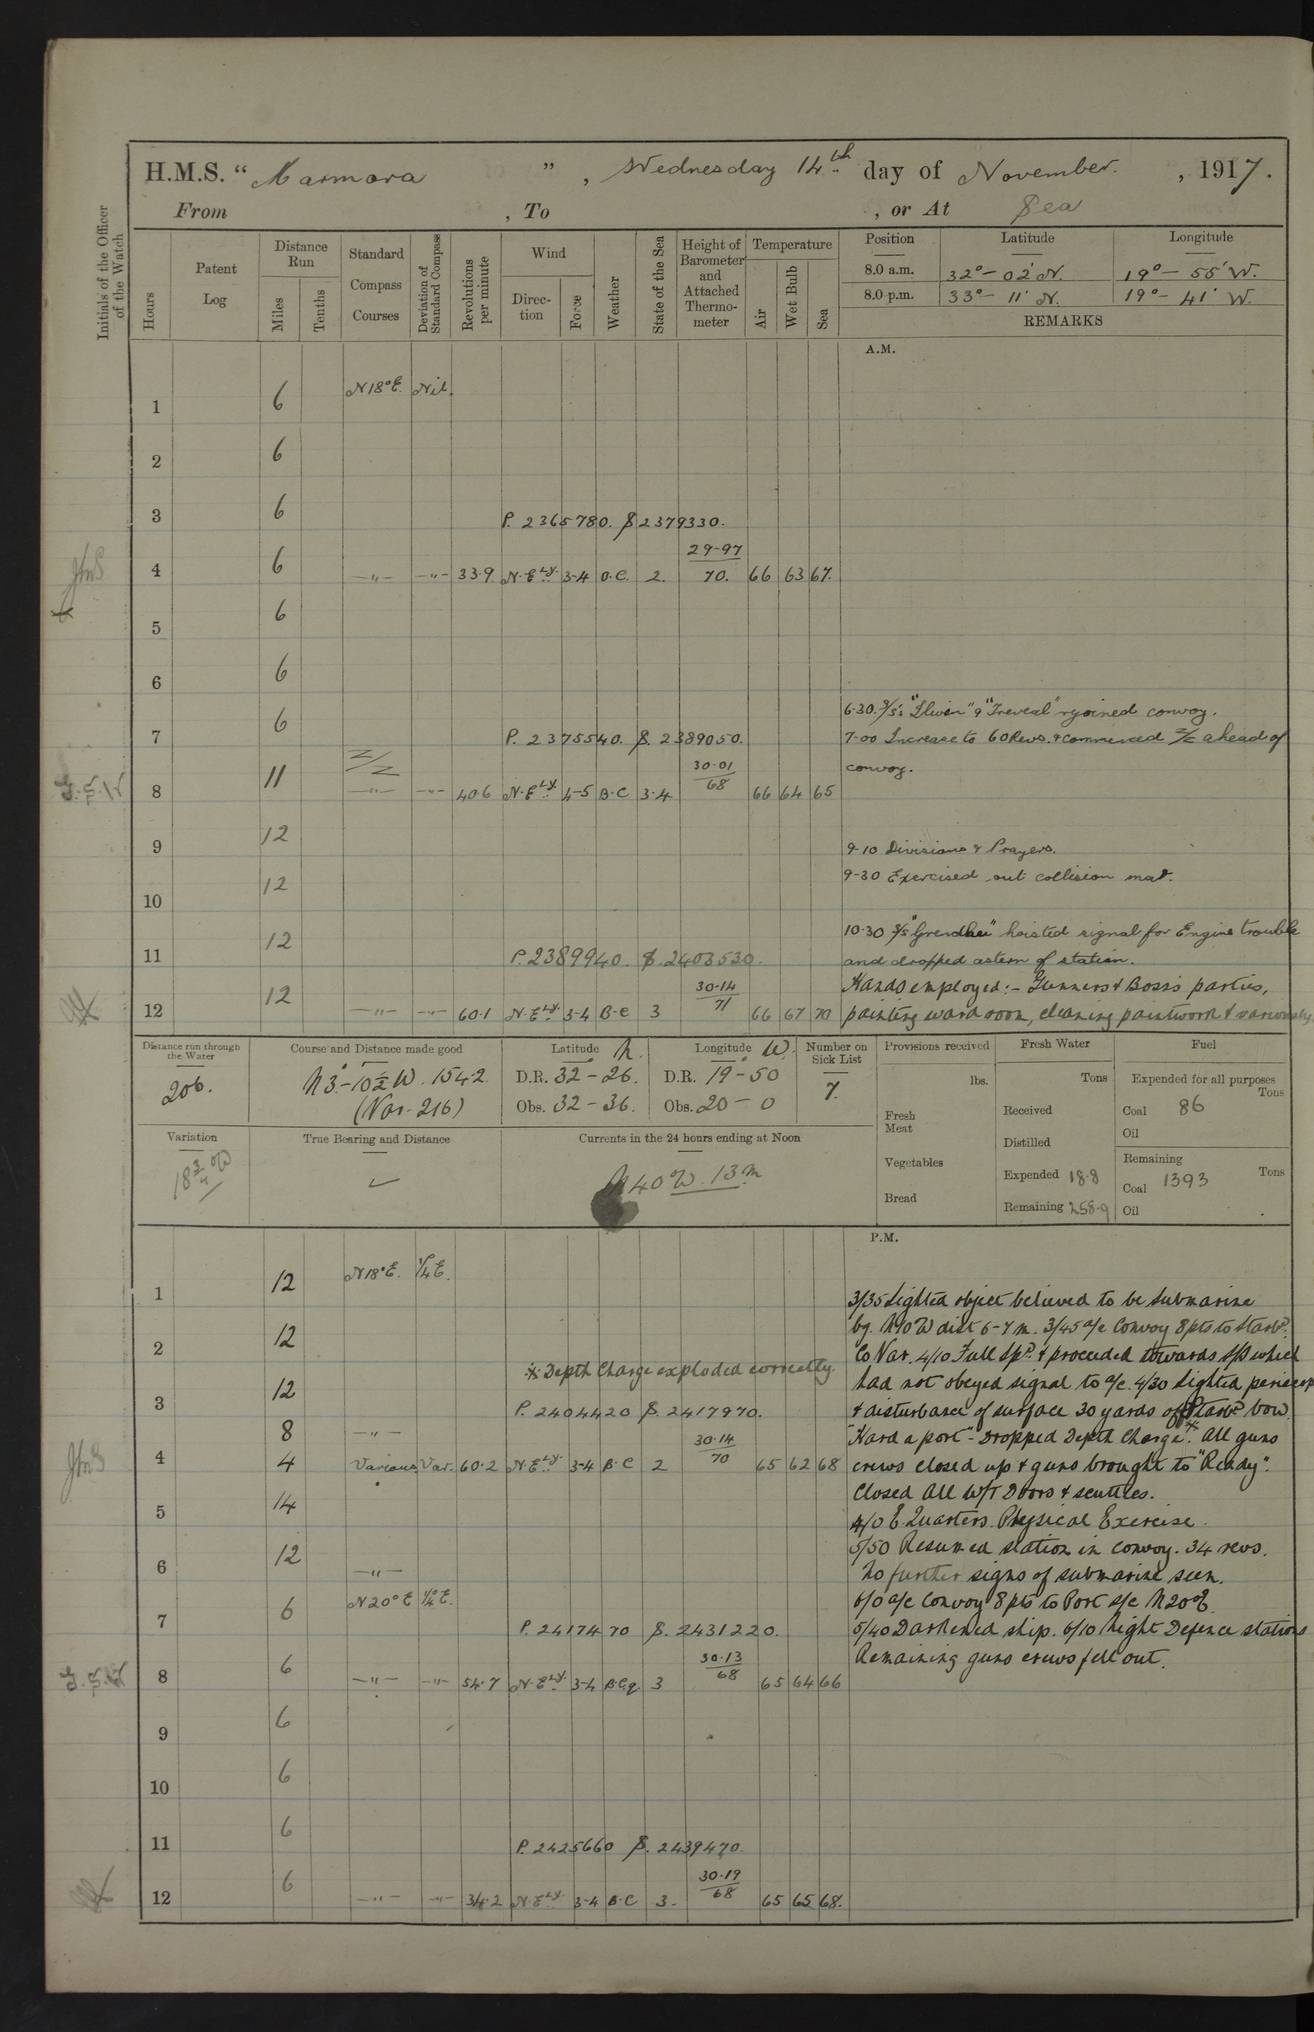 H.M.S. “Marmora”, Wednesday 14th day of November, 1917.
From , To , or At Sea
Initials of the Officer of the Watch
Hours
Patent Log
Distance Run
Miles
Tenths
Standard Compass Courses
Deviation of Standard Compass
Revolutions per minute
Wind
Direction
Force
Weather
State of the Sea
Height of Barometer and Attached Thermometer
Temperature
Air
Wet Bulb
Sea
Position Latitude Longitude
8.0 a.m. 32°-02' N. 19°-55' W.
8.0 p.m. 33°-11' N. 19°-41' W.
REMARKS
A.M.
1 6 N18°E. Nil.
2 6
3 6 P. 2365780. S 2379330.
29-97
4 6 -"- -"- 33.9 N.ELy. 3-4 O.C. 2. 70. 66 63 67.
5 6
6 6
6.30. S/S's "Treveal" rejoined convoy.
7 6 P. 2375540. S. 2389050. 7-00 Increase to 60 Revs. & commenced Z/Z ahead of
Z/Z 30.01 convoy.
8 11 -"- -"- 40.6 N.ELy. 4-5 B.C 3.4 68 66 64 65
9 12 9-10 Divisions & Prayers.
9-30 Exercised out collision mat.
10 12
10.30 S/S hoisted signal for Engine trouble
11 12 P. 2389940. S. 2403530. and dropped astern of station.
30.14 Hands employed:- Gunners & Bosss parties,
12 12 -"- -"- 60.1 N.ELy. 3-4 B.C 3 71 66 67 70 painting ward room, cleaning paintwork & variously
Distance run through the Water
206.
Course and Distance made good
N3°-10½ W. 154.2
(Var. 216)
Latitude N.
D.R. 32-26.
Obs. 32-36.
Longitude W.
D.R. 19-50
Obs. 20-0
Number on Sick List
7.
Provisions received
lbs.
Fresh Meat
Vegetables
Bread
Fresh Water
Tons
Received
Distilled
Expended 18.8
Remaining 258.9
Fuel
Expended for all purposes
Tons
Coal 86
Oil
Remaining
Tons
Coal 1393
Oil
Variation
18¾°W
True Bearing and Distance
Currents in the 24 hours ending at Noon
N40°W. 13m
P.M.
1 12 N18°E. ¼E. 3/35 Sighted object believed to be submarine
2 12 bg. N10W dist 6-7 m. 3/45 a/c Convoy 8pts to Starbd.
Co Var. 4/10 Full Spd. & proceeded towards S/S which
※ Depth Charge exploded correctly. had not obeyed signal to a/c. 4/30 Sighted periscope
3 12 P. 2404420 S. 2417970. & disturbance of surface 30 yards off Starbd bow.
8 -"- 30.14 "Hard a port"- Dropped Depth Charge※. All guns
4 4 Various Var. 60.2 N.ELy. 3-4 B.C 2 70 65 62 68 crews closed up & guns brought to "Ready".
Closed All W/T Doors & scuttles.
5 14 4/0 E. Quarters. Physical Exercise.
5/50 Resumed station in convoy. 34 revs.
6 12 -"- No further signs of submarine seen.
N20°E ¼°E. 6/0 a/c Convoy 8pts to Port s/c N20°E.
7 6 P. 2417470 S. 2431220. 5/40 Darkened ship. 6/10 Night Defence stations
30.13 Remaining guns crews fell out.
8 6 -"- -"- 54.7 N.ELy. 3-4 B.C.q. 3 68 65 64 66
9 6
10 6
11 6 P. 2425660 S. 2439470.
30.19
12 6 -"- -"- 34.2 N.ELy. 3-4 B.C 3- 68 65 65 68.